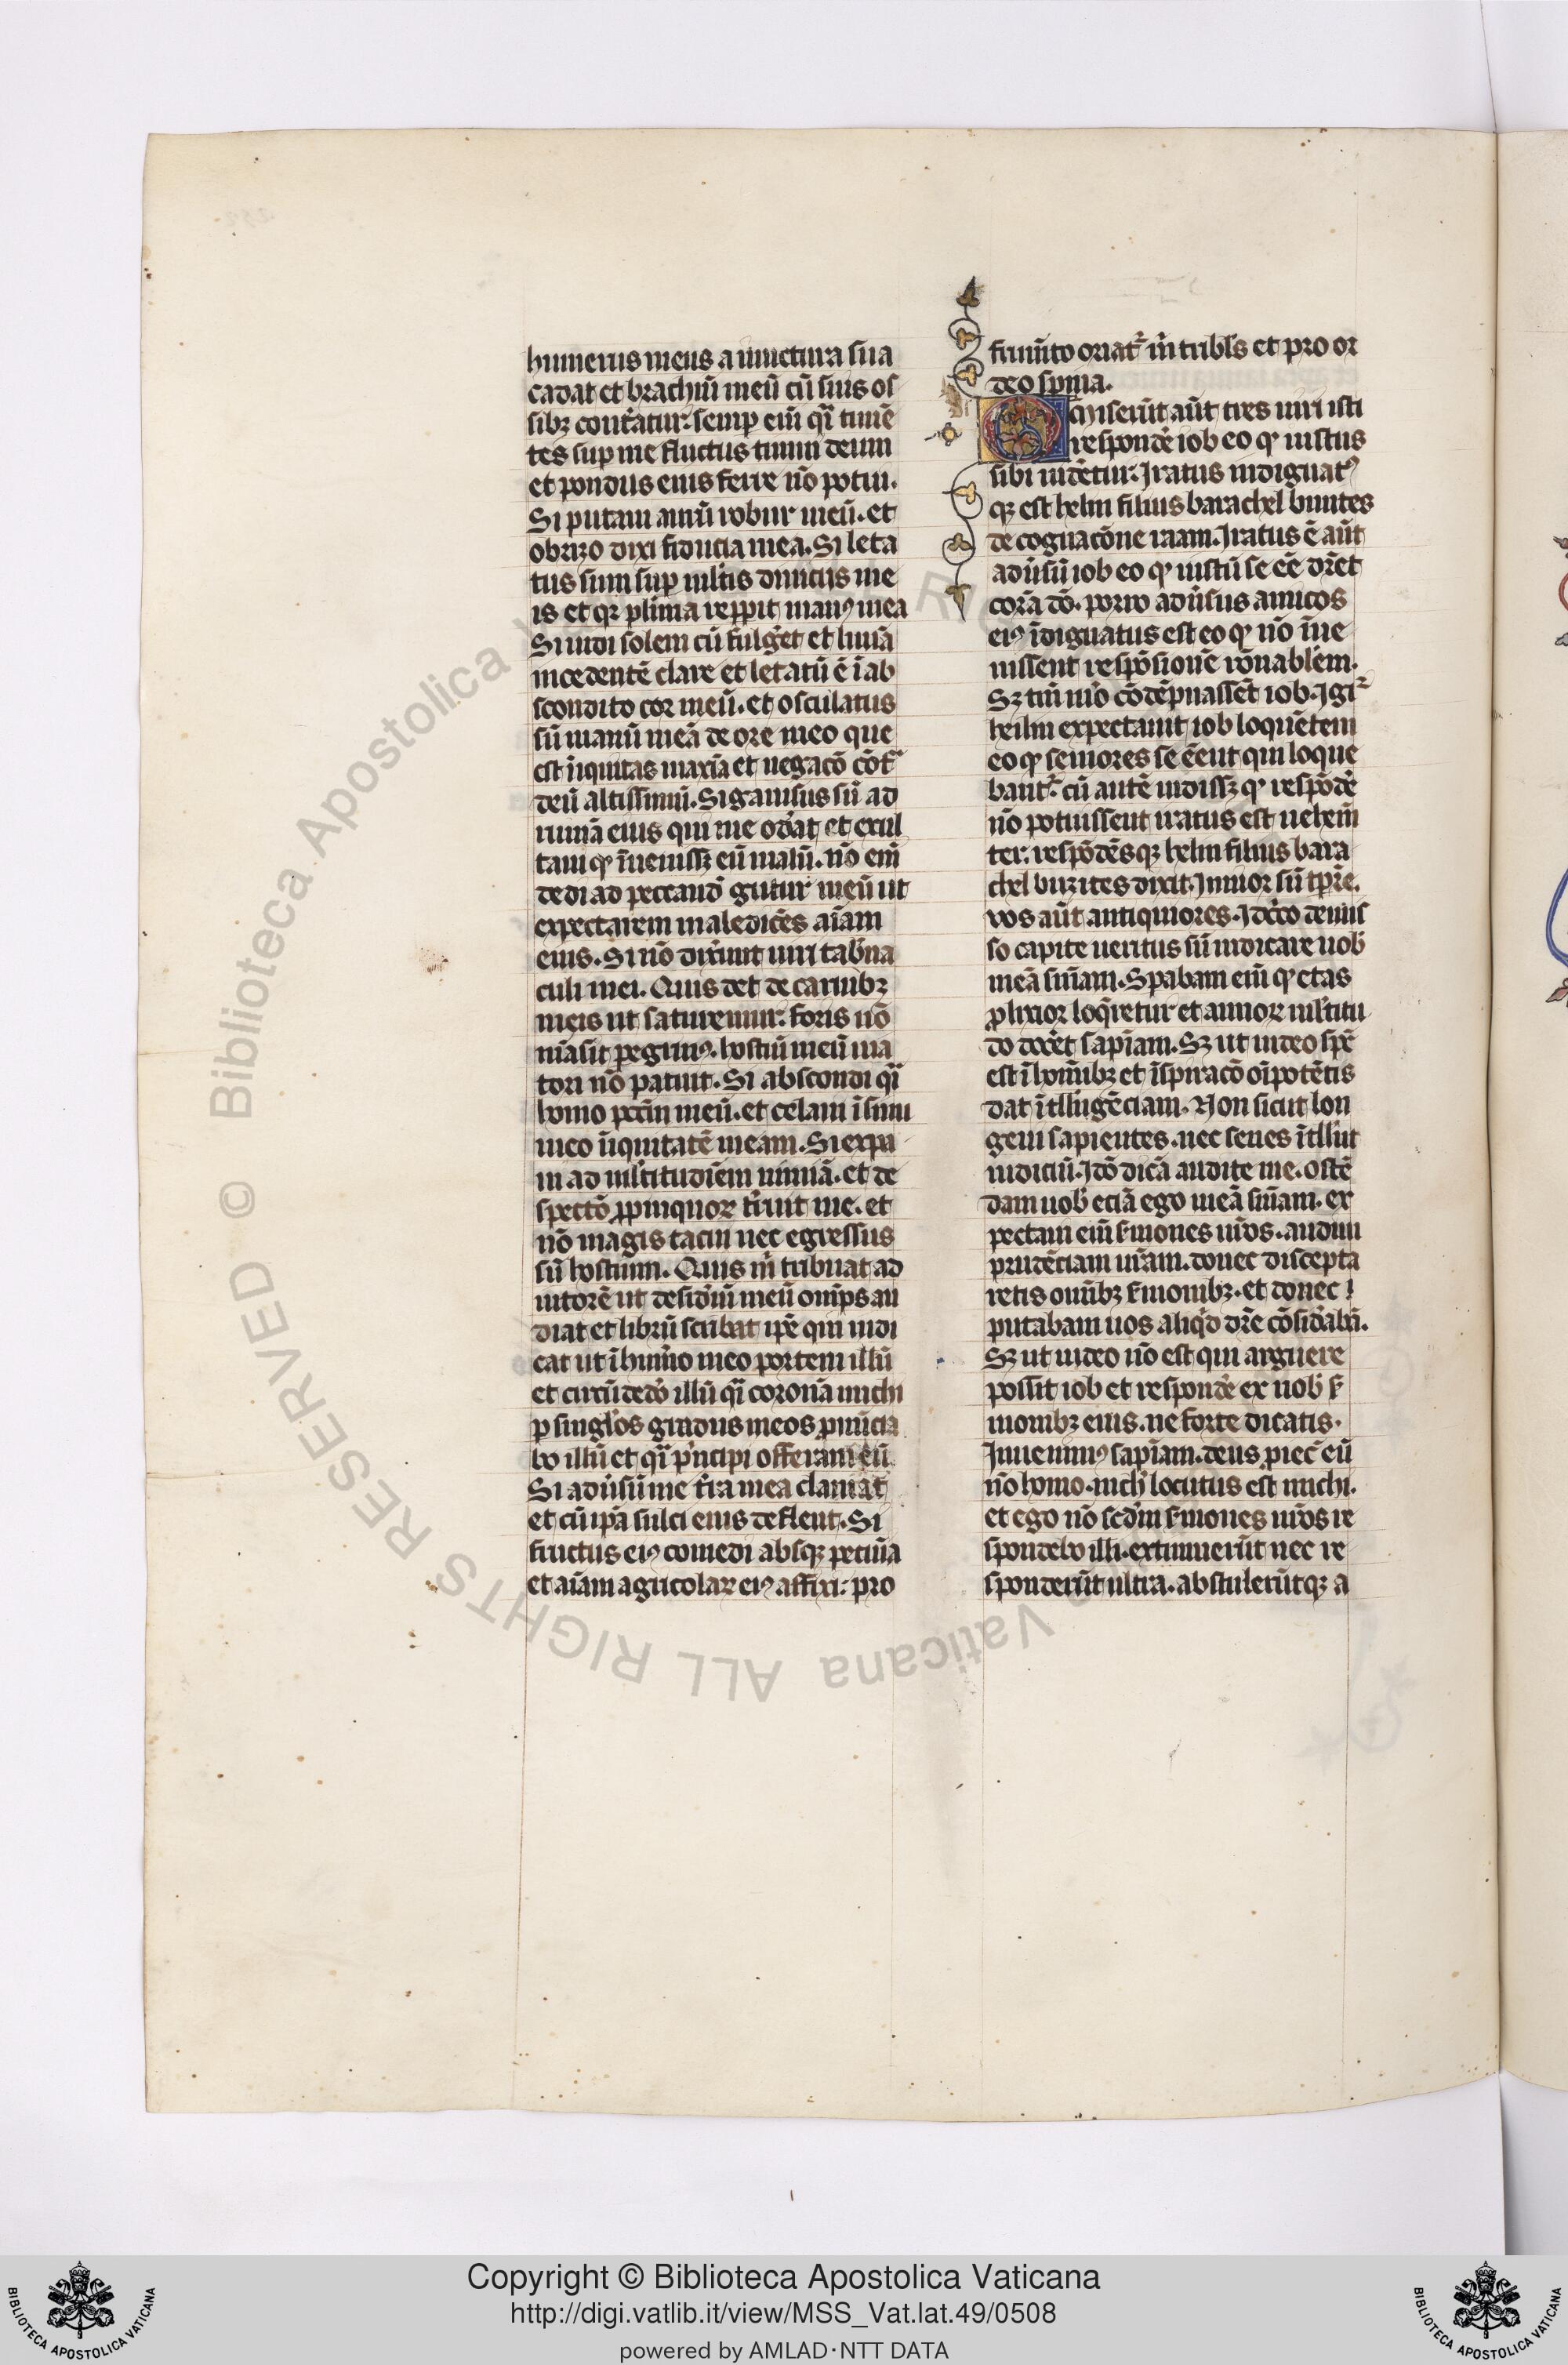 humerus meus a iunctura sua
cadat et brachiū meū cū suis os
sibꝫ cont̾atur. semꝑ eī qͣi tumē
tes suꝑ me fluctus timui deum
et pondus eius ferre nō potui.
Si putaui aurū robur meū. et
obrizo dixi fiducia mea. Si leta
tus sum suꝑ ml̾tis diuiciis me
is et qꝛ pl̾ima repꝑit manꝰ mea
Si uidi solem cū fulḡet et lunā
incedentē clare et letatū ē ī ab
scondito cor meū. et osculatus
sū manū meā de ore meo que
est īiquitas maxīa et negacō cōtͣ
deū altissimū. Si gauisus sū ad
ruinā eius qui me odāt et exul
taui ꝙ īuenissꝫ eū malū. nō eī
dedi ad peccandū guttur meū ut
expectarem maledicēs aīam
eius. Si nō dixerūt uiri tab̾na
culi mei. Quis det de carnibꝫ
meis ut saturemur. foris nō
māsit ꝑegrinꝰ. hostiū meū uia
tori nō patuit. Si abscondi qͣi
homo pccm̄ meū. et celaui ī sinu
meo īiquitatē meam. Si expa
ui ad ml̾titudiēm nimiā. et de
spectō ꝓpinquoꝝ t̾ruit me. et
nō magis tacui nec egressus
sū hostium. Quis m̄ tribuat ad
iutorē ut desid̾iū meū om̄ps au
diat et librū scribat ipē qui iudi
cat ut ī hum̾o meo portem illū
et circūdedō illū qͣi coronā michi
ꝑ singl̾os gradus meos ꝓnūcia
bo illū et qͣi pͥncipi offeram eū.
Si adūsū me t̄ra mea clamat
et cū ipā sulci eius deflent. Si
fructus eiꝰ comedi absqꝫ pecūia
et aīam agricolaꝝ eiꝰ affixi: pro
frum̄to oriat̾ m̄ tribl̾s et pro or
deo spina.
Omiserūt aūt tres uiri isti
respondē iob eo ꝙ iustus
sibi uidētur. Iratus indignatꝰ
qꝫ est heliu filius barachel buzites
de cognacōne raam. Iratus ē aūt
adūsū iob eo ꝙ iustū se eē dr̄et
corā dō. porro adūsus amicos
eiꝰ īdignatus est eo ꝙ nō īue
nissent respōsionē rōnablēm.
Sꝫ tm̄ mō cōdēpnassēt iob. Igiꝛ̾
heliu expectauit iob loquētem
eo ꝙ seniores se eēnt qui loque
bant̾. cū autē uidissꝫ ꝙ respōdē
nō potuissent iratus est uehem̄
ter. respōdēsqꝫ heliu filius bara
chel buzites dixit. Iunior sū tp̄re.
vos aūt antiquiores. Idcc̄o demis
so capite ueritus sū indicare uob̾
meā sn̄iam. Sꝑabam eī ꝙ etas
ꝓlixior loq̄retur et annoꝝ ml̾titu
do docēt sapīam. Sꝫ ut uideo sp̄c
est ī homībꝫ et īspiracō oīpotētis
dat ītll̾igēciam. Non sicut lon
geui sapientes. nec senes ītll̾ūt
iudiciū. Idō dicā audite me. ostē
dam uob̾ eciā ego meā sn̄iam. ex
pectaui eī ẜmones ur̄os. audiui
prudēciam ur̄am. donec discepta
retis omībꝫ ẜmonibꝫ. et donec
putabam uos aliqͥd dr̄e cōsid̾abā.
Sꝫ ut uideo nō est qui arguere
possit iob et respondē ex uob̾ ẜ
monibꝫ eius. ne forte dicatis.
Inuenimꝰ sapīam. deus ꝓiec̄ eū
nō homo. nich̾ locutus est michi.
et ego nō scd̾m ẜmones ur̄os re
spondebo illi. extimuerūt nec re
sponderūt ultra. abstulerūtqꝫ a
© Biblioteca Apostolica Vaticana ALL RIGHTS RESERVED
Copyright © Biblioteca Apostolica Vaticana
http://digi.vatlib.it/view/MSS_Vat.lat.49/0508
powered by AMLAD·NTT DATA
BIBLIOTECA APOSTOLICA VATICANA
BIBLIOTECA APOSTOLICA VATICANA